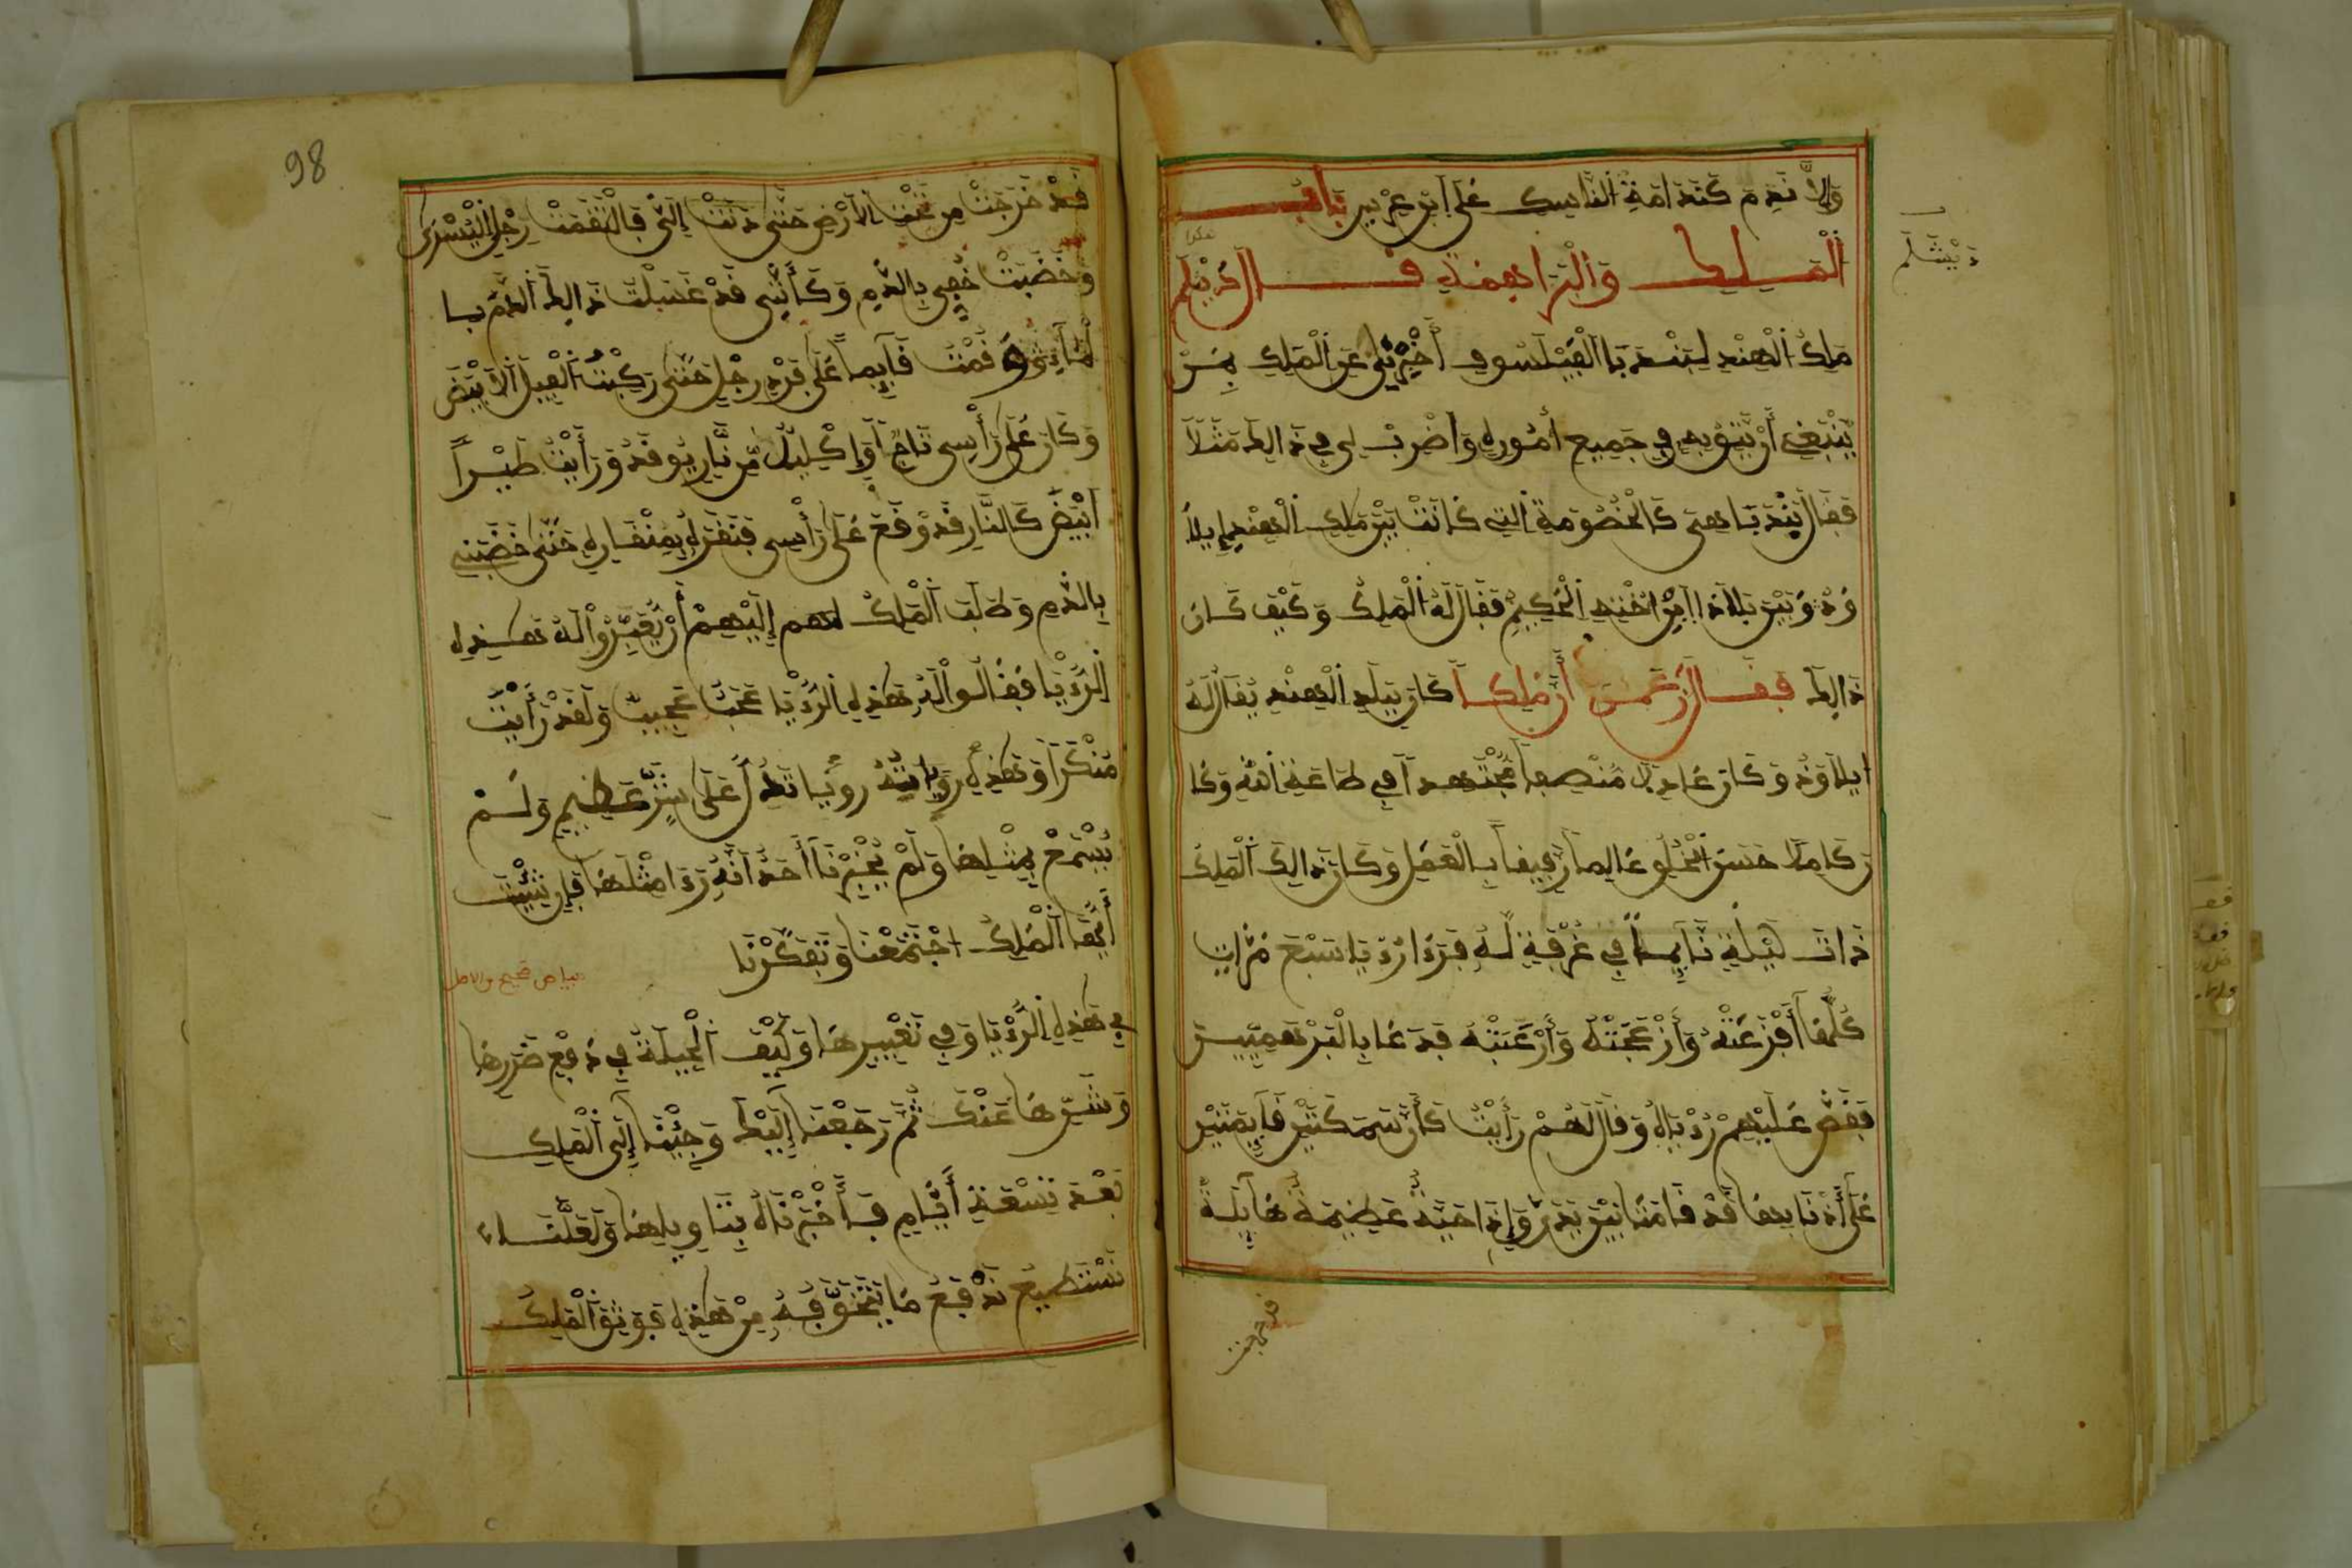 وإلا ندم كندامة الناسك على ابن عرس باب
الملك والبراهمة قال دبشلم
دبشلم
ملك الهند لبندبا الفيلسوف أخبرني عن الملك بمن
ينبغي أن يثق به في جميع أموره واضرب لي في ذالك مثلا
فقال بندبا هي كالخصومة التي كانت بين ملك الهند إبلا
ود وبين بلاذا ابن أخته الحكيم فقال له الملك وكيف كان
ذالك فقال زعمت أن ملكا كان ببلد الهند يقال له
ابلاود وكان عادلا منصفا مجتهدا في طاعة الله وكا
ن كاملا حسن الخلق عالما رفيقا بالعمل وكان ذالك الملك
ذات ليلة نايما في غرفة له فرءا رؤيا سبع مرات
كلها أفزعته وأزعجته وأرعبته فدعا بالبرهميين
فقص عليهم رؤياه وقال لهم رأيت كأن سمكتين قايمتين
على أذنابهما قد قامتا بين يدي وإذا حية عظيمة هايلة
قد خرجت
98
قد خرجت من تحت الأرض حتى دنت إلي فالتقمت رجلي اليسرى
وخضبت خفي بالدم وكأنني قد غسلت ذالك الدم بما
ثم وقمت قايما على فرد رجل حتى ركبت الفيل الأبيض
وكان على رأسي تاج أو إكليل من نار يوقد ورأيت طيرا
ابيض كالنار قد وقع على رأسي فنقره بمنقاره حتى خضبني
بالدم وطلب الملك إليهم أن يعبروا له هذه
الرؤيا فقالوا له هذه الرؤيا عجب عجيب ولقد رأيت
منكرا وهذه رؤيا تدل على شر عظيم ولم
يسمع بمثلها ولم يخبرنا أحد أنه رءا مثلها فإن شئت
أيها الملك اجتمعنا وتفكرنا
بياض صحيح في الاصل
في هذه الرؤيا وفي تعبيرها وكيف الحيلة في دفع ضررها
وشرها عنك ثم رجعنا إليك وجئنا إلى الملك
بعد تسعة أيام فأخبرناه بتاويلها ولعلنا
نستطيع ندفع ما يتخوفه من هذه فوثق الملك